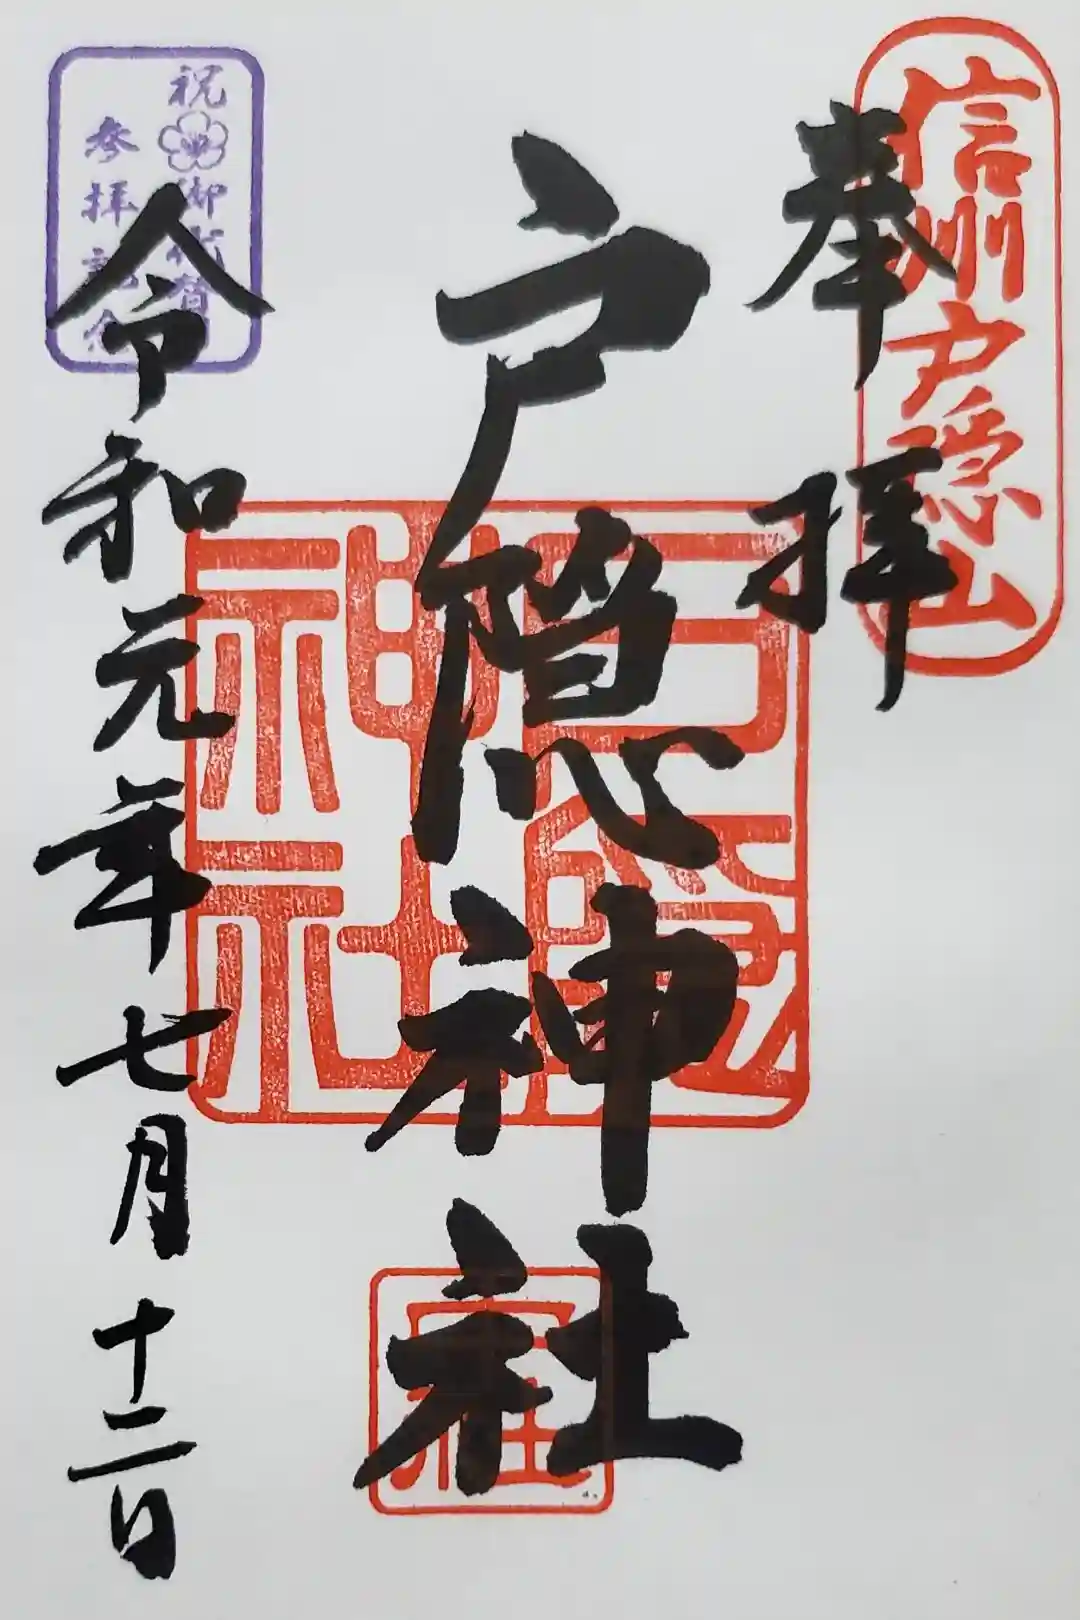 信州戸隠山
奉拝
戸隠神社
戸隠神社
令和元年七月十二日
祝御代替
参拝記念